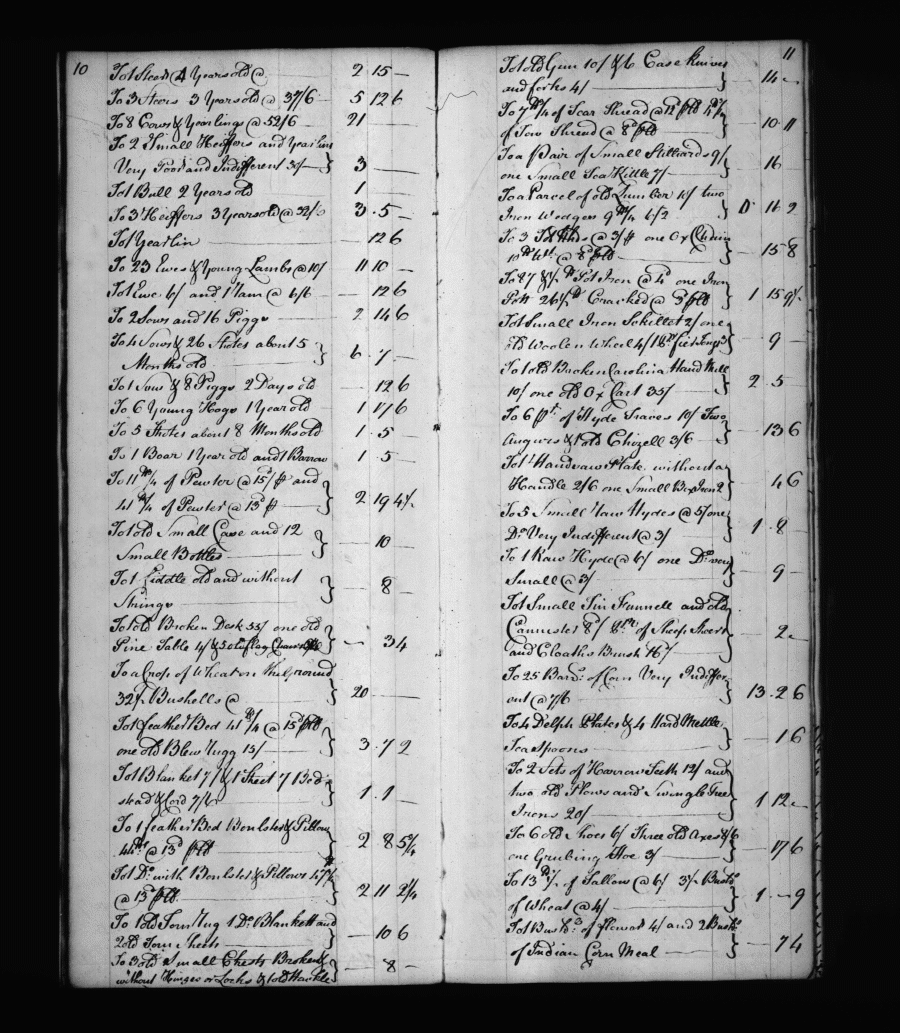 10
To 1 Steer 4 Years old @ 2 15 —
To 3 Steers 3 Years old @ 37/6 — 5 12 6
To 8 Cows & Yearlings @ 52/6 21 —
To 2 Small Heiffers and Yearlins
Very Poor and Indifferent 30/ — } 3 —
To 1 Bull 2 Years old 1 —
To 3 Heiffers 3 Years old @ 32/ 3 . 5 —
To 1 Yearlin — 12 6
To 23 Ewes & Young Lambs @ 10/ 11 10 —
To 1 Ewe 6/ and 1 Ram @ 6/6 — 12 6
To 2 Sows and 16 Piggs 2 14 6
To 4 Sows & 26 Shotes about 5
Months old } 6 . 7 —
To 1 Sow & 8 Piggs 2 Days old — 12 6
To 6 Young Hogs 1 Year old 1 17 6
To 5 Shotes about 8 Months old 1 . 5 —
To 1 Boar 1 Year old and 1 Barrow 1 . 5 —
To 11 lb 1/4 of Pewter @ 15d/ lb and
41 lb 1/4 of Pewter @ 13d lb } 2 19 4 1/2
To 1 old Small Case and 12
Small Bottles } — 10 —
To 1 Fiddle old and without
Strings } — 8 —
To 1 old Broken Desk 55/ one old
Pine Table 4/ & 5 old flag Chairs } — 3 4
To a Crop of Wheat on the Ground
32 1/2 Bushells @ } 20 —
To 1 feather Bed 41 lb 1/4 @ 15d
one old Blew Rugg 15/ } 3 . 7 2
To 1 Blanket 7/ & 1 Sheet 7 1 Bed-
stead & Cord 7/6 } 1 . 1 —
To 1 feather Bed Bonlster & Pillow
44 lb @ 13d } 2 8 5 3/4
To 1 Do. with Bonlster & Pillows 47 lb
@ 13d } 2 11 2 1/4
To 1 old Torn Rug 1 Do. Blankett and
2 old Torn Sheets — 10 6
To 3 old Small Chests Broken &
without Hinges or Locks & 1 old Hackle } — 8 —
11
To 1 old Gun 10/ & 6 Case Knives
and forks 4/ } — 14 —
To 7 lb 1/4 of Sear Thread @
of Tow Thread @ 8d } — 10 11
To a Pair of Small Stilliards 9/
one Small Tea Kittle 7/ — } — 16
To a Parcel of old Lumber 10/ two
Iron Wedges 9 lb 1/4 6/2 } D 16 2
To 3 @ 3/ one Ox Chain
@ 8d } — 15 8
To 87 lb Pot Iron @ 4d one Iron
Pott 26 1/2 lb Cracked @ 3d } 1 15 9 1/2
To 1 Small Iron Schillet 2/ one
old Woolen Wheel 4/ } — 9 —
To 1 old Broken Carolina Hand Mill
10/ one old Ox Cart 35/ } 2 . 5 —
To 6 pr of Hyde Traces 10/ Two
Augurs & 1 old Chizell 3/6 } — 13 6
To 1 Handsaw Plate without a
Handle 2/6 one Small Box Iron 2 } — 4 6
To 5 Small Raw Hydes @ 5/ one
Do. Very Indifferent @ 3/ } 1 . 8
To 1 Raw Hyde @ 6/ one Do. very
Small @ 3/ } — 9 —
To 1 Small Tin Funnell and old
Cannister 8/ 8 pr of Sheep Sheers
and Cloaths Brush — 2 —
To 25 Bars. of Corn Very Indiffer-
ent @ 7/6 } 13 . 2 6
To 4 Delph Plates & 4 Hard Mettle
Teaspoons } — 1 6
To 2 Sets of Harrow Teeth 12/ and
two old Plows and Swingle Tree
Irons 20/ } 1 12 —
To 6 old Shoes 6/ Three old Axes 8/6
one Grubing Hoe 3/ } — 17 6
To 13 lb of Tallow @ 6/ 3 1/2 Bushs.
of Wheat @ 4/ } 1 — 9
To 1 Bush. of 4/ and 2 Bush.
of Indian Corn Meal } — 7 4